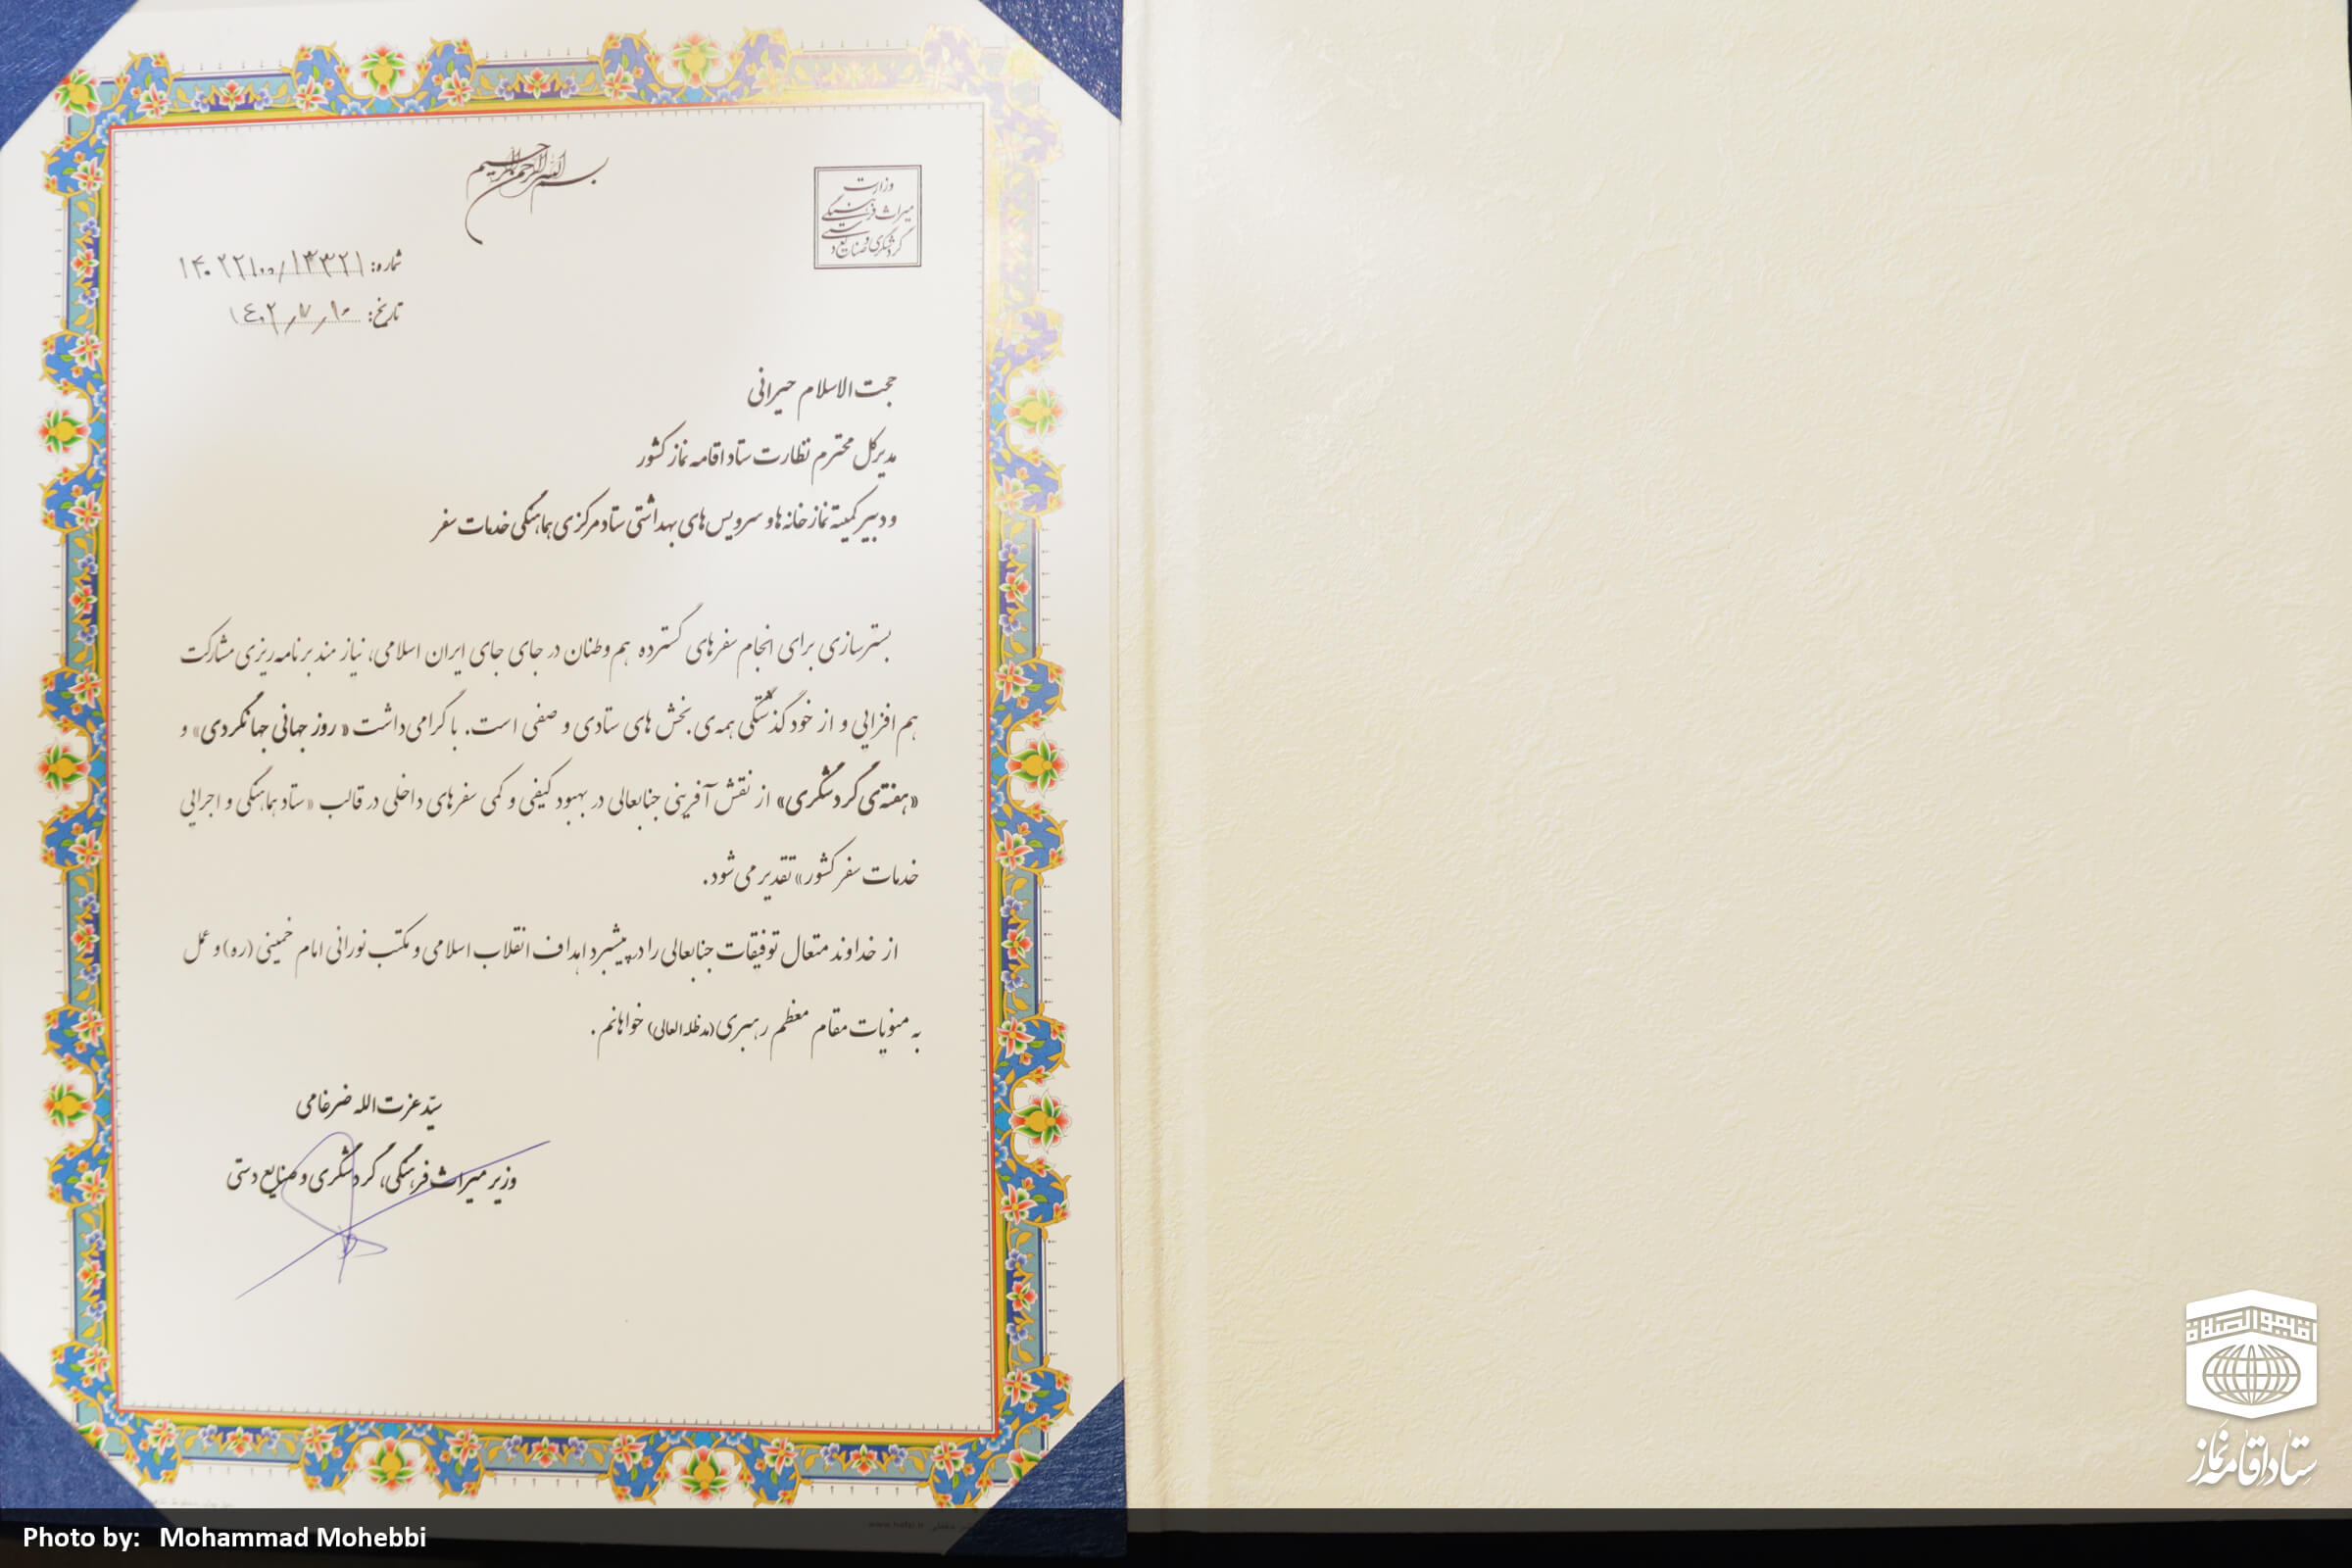 بسم الله الرحمن الرحیم
وزارت
میراث فرهنگی
گردشگری و صنایع دستی
شماره: ۱۴۰۲۲۱۰۰/۱۳۳۲۱
تاریخ: ۱۴۰۲/۷/۱۰
حجت الاسلام حیرانی
مدیرکل محترم نظارت ستاد اقامه نماز کشور
و دبیر کمیته نمازخانه ها و سرویس های بهداشتی ستاد مرکزی هماهنگی خدمات سفر
بسترسازی برای انجام سفرهای گسترده هم وطنان در جای جای ایران اسلامی، نیازمند برنامه ریزی مشارکت
هم افزایی و از خودگذشتگی همه ی بخش های ستادی و صفی است. با گرامی داشت «روز جهانی جهانگردی» و
«هفته ی گردشگری» از نقش آفرینی جنابعالی در بهبود کیفی و کمی سفرهای داخلی در قالب «ستاد هماهنگی و اجرایی
خدمات سفر کشور» تقدیر می شود.
از خداوند متعال توفیقات جنابعالی را در پیشبرد اهداف انقلاب اسلامی و مکتب نورانی امام خمینی (ره) و عمل
به منویات مقام معظم رهبری (مدظله العالی) خواهانم.
سیّد عزت الله ضرغامی
وزیر میراث فرهنگی، گردشگری و صنایع دستی
اقیموا الصلاة
ستاد اقامه نماز
Photo by: Mohammad Mohebbi